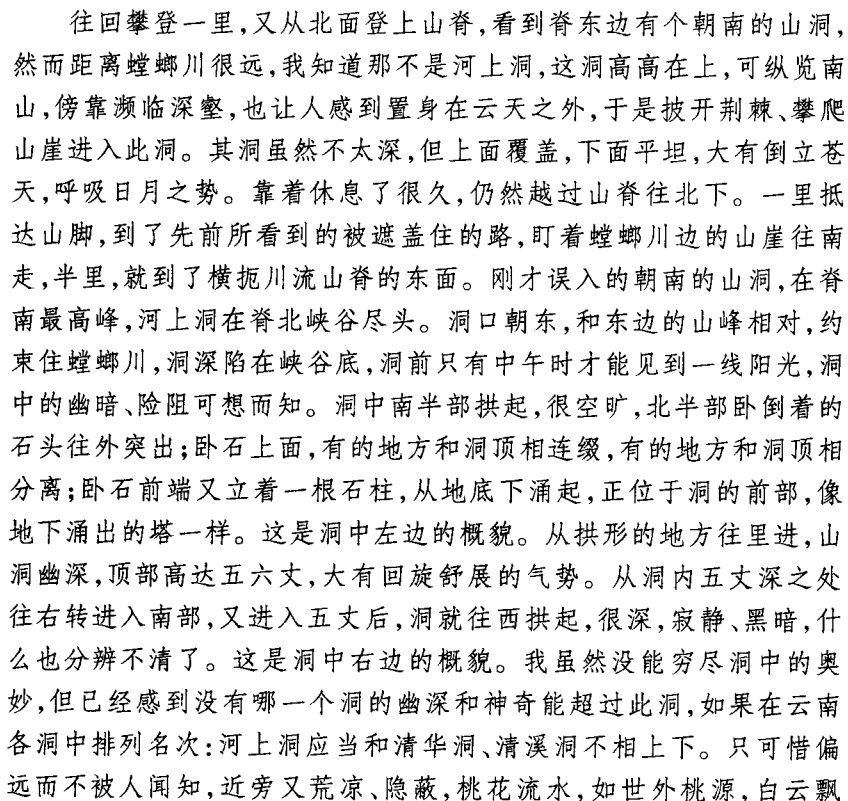 往回攀登一里,又从北面登上山脊,看到脊东边有个朝南的山洞,
然而距离螳螂川很远,我知道那不是河上洞,这洞高高在上,可纵览南
山,傍靠濒临深壑,也让人感到置身在云天之外,于是披开荆棘、攀爬
山崖进入此洞。其洞虽然不太深,但上面覆盖,下面平坦,大有倒立苍
天,呼吸日月之势。靠着休息了很久,仍然越过山脊往北下。一里抵
达山脚,到了先前所看到的被遮盖住的路,盯着螳螂川边的山崖往南
走,半里,就到了横扼川流山脊的东面。刚才误入的朝南的山洞,在脊
南最高峰,河上洞在脊北峡谷尽头。洞口朝东,和东边的山峰相对,约
束住螳螂川,洞深陷在峡谷底,洞前只有中午时才能见到一线阳光,洞
中的幽暗、险阻可想而知。洞中南半部拱起,很空旷,北半部卧倒着的
石头往外突出;卧石上面,有的地方和洞顶相连缀,有的地方和洞顶相
分离;卧石前端又立着一根石柱,从地底下涌起,正位于洞的前部,像
地下涌出的塔一样。这是洞中左边的概貌。从拱形的地方往里进,山
洞幽深,顶部高达五六丈,大有回旋舒展的气势。从洞内五丈深之处
往右转进入南部,又进入五丈后,洞就往西拱起,很深,寂静、黑暗,什
么也分辨不清了。这是洞中右边的概貌。我虽然没能穷尽洞中的奥
妙,但已经感到没有哪一个洞的幽深和神奇能超过此洞,如果在云南
各洞中排列名次:河上洞应当和清华洞、清溪洞不相上下。只可惜偏
远而不被人闻知,近旁又荒凉、隐蔽,桃花流水,如世外桃源,白云飘